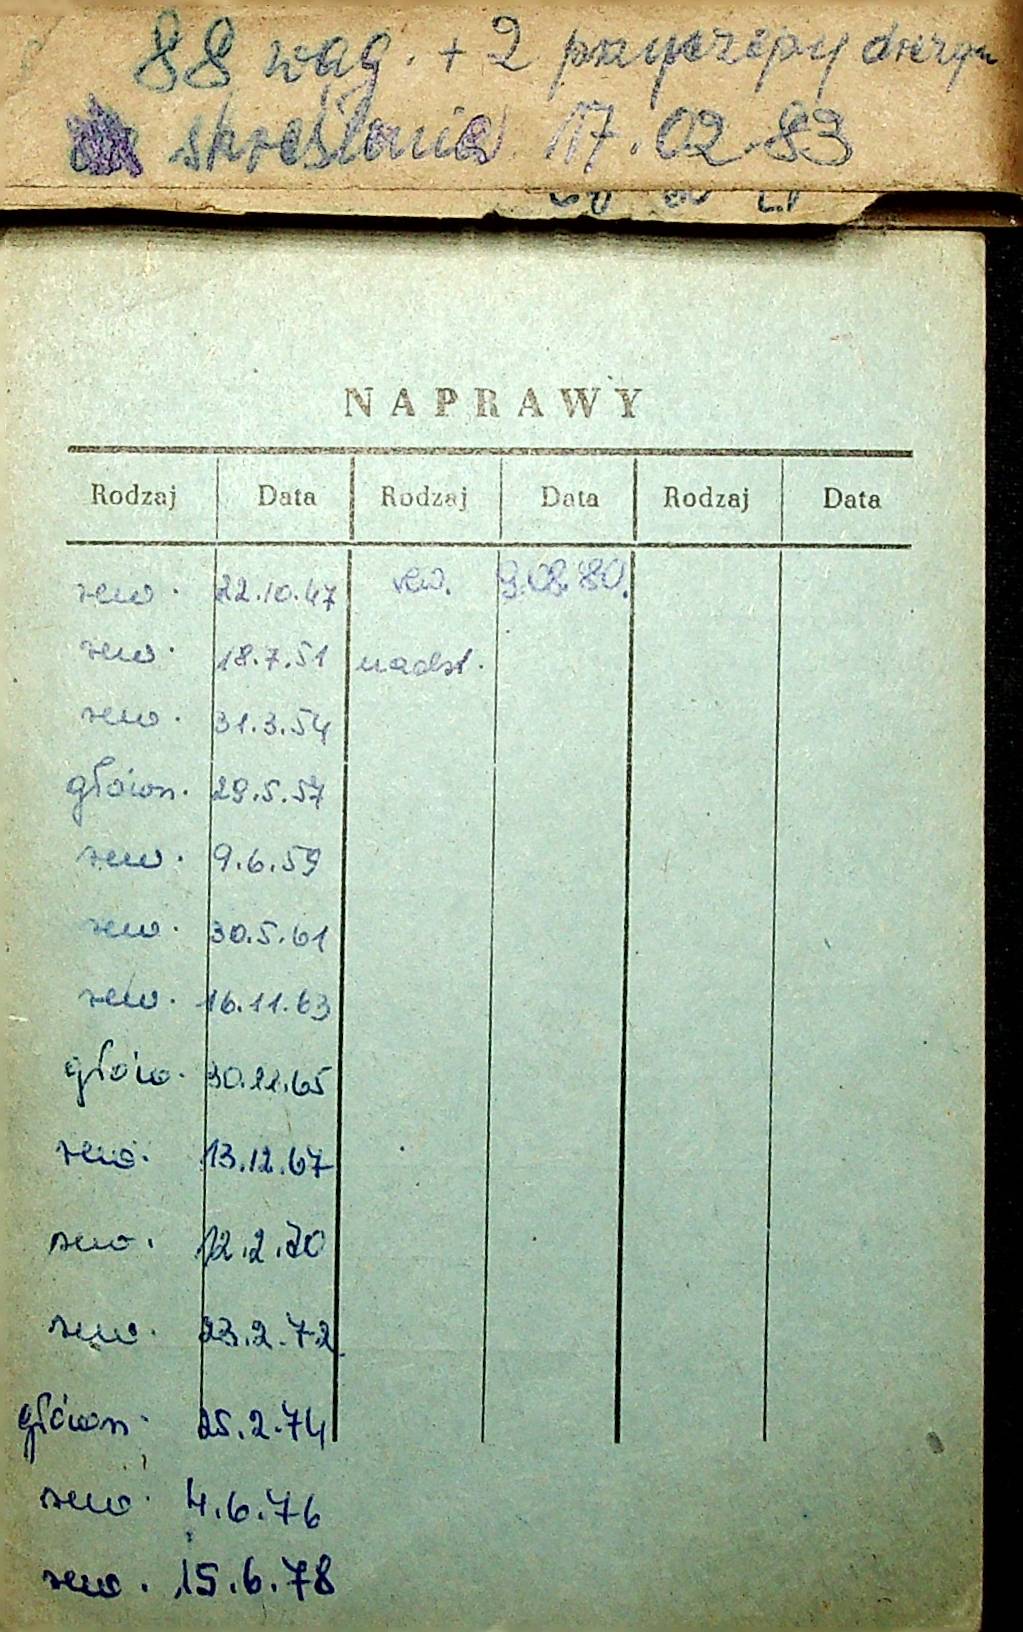 88 wag. + 2 przyczepy
skreślenie 17.02.83
NAPRAWY
Rodzaj Data Rodzaj Data Rodzaj Data
rew. 22.10.47 rew. 9.08.80.
rew. 18.7.51 nadst.
rew. 31.3.54
główn. 29.5.57
rew. 9.6.59
rew. 30.5.61
rew. 16.11.63
główn. 30.11.65
rew. 13.12.67
rew. 12.2.70
rew. 23.2.72
główn. 25.2.74
rew. 4.6.76
rew. 15.6.78